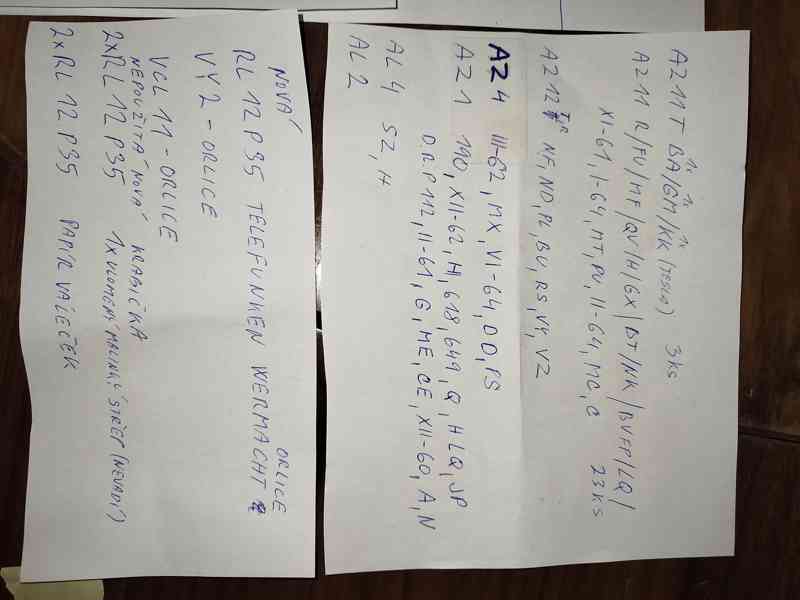 AZ11T BA/GM/KK (TESLA) 3KS
1x 1x 1x
AZ11 R/FU/MF/QV/H/GX/BT/NK/BVFP/LQ/
XI-61, I-64, MT, PV, II-64, MC, C 23KS
AZ12 NF, ND, PL, BU, RS, VY, VZ
AZ4 III-62, MX, VI-64, OO, PS
AZ1 190, XII-62, H, 618, 649, Q, HLQ, JP
D.R.P112, II-61, G, ME, CE, XII-60, A, N
AL4 SZ, H
AL2
NOVÁ ORLICE
RL 12 P35 TELEFUNKEN WERMACHT
VY2 - ORLICE
VCL 11 - ORLICE
NEPOUŽITÁ NOVÁ KRABIČKA
2xRL 12 P35 1x ULOMENÝ MALINKÝ STŘEP (NEVADÍ)
2xRL 12 P35 PAPÍR VÁLEČEK